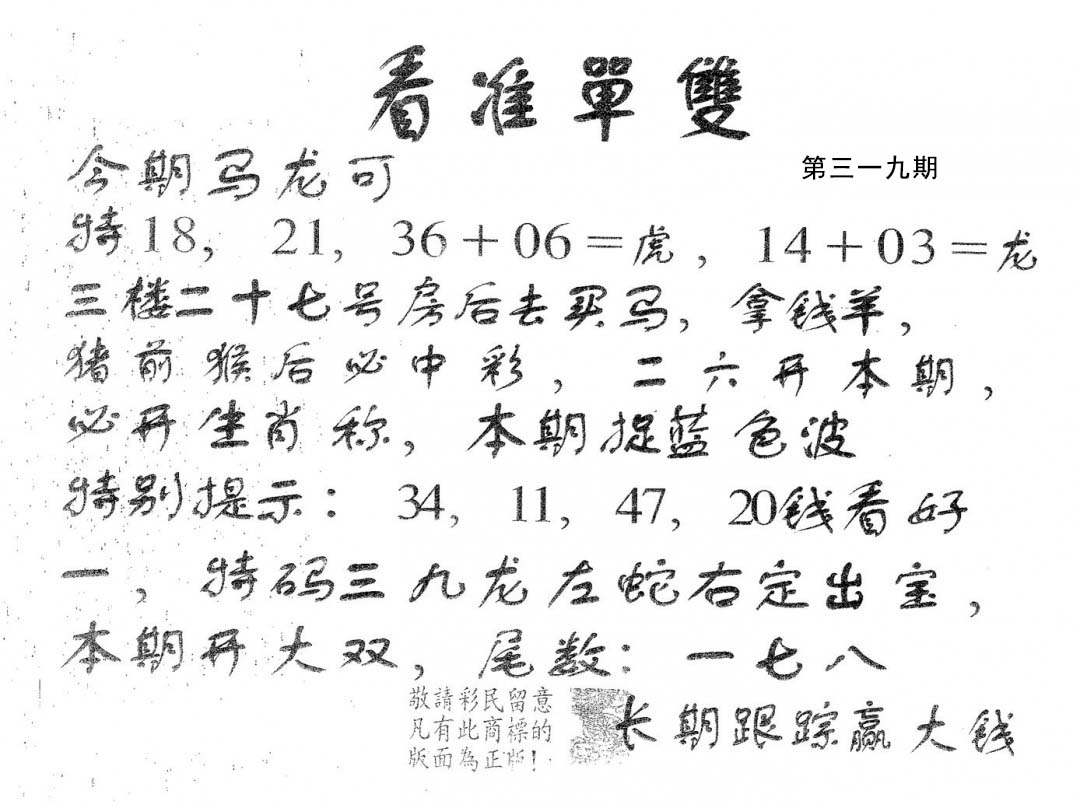 看准單雙
第三一九期
今期马龙可
特18, 21, 36+06=虎, 14+03=龙
三楼二十七号房后去买马, 拿钱羊,
猪前猴后必中彩, 二六开本期,
必开生肖称, 本期捉蓝色波
特别提示: 34, 11, 47, 20钱看好
一, 特码三九龙左蛇右定出宝,
本期开大双, 尾数: 一七八
敬請彩民留意
凡有此商標的
版面為正版!
长期跟踪赢大钱